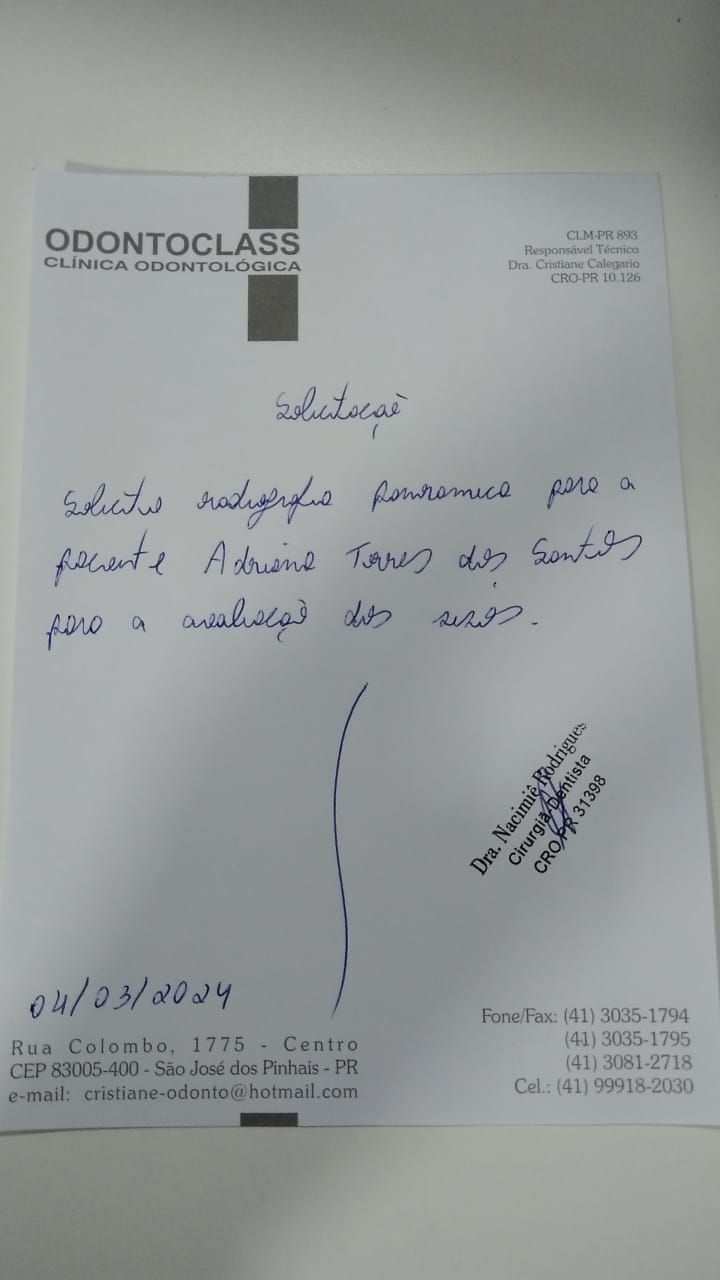 ODONTOCLASS
CLÍNICA ODONTOLÓGICA
CLM-PR 893
Responsável Técnico
Dra. Cristiane Calegario
CRO-PR 10.126
Solicitação
Solicito radiografia panoramica para a
paciente Adriana Torres dos Santos
para a avaliação dos sisos.
Dra. Nacimiê Rodrigues
Cirurgiã-Dentista
CRO/PR 31398
04/03/2024
Rua Colombo, 1775 - Centro
CEP 83005-400 - São José dos Pinhais - PR
e-mail: cristiane-odonto@hotmail.com
Fone/Fax: (41) 3035-1794
(41) 3035-1795
(41) 3081-2718
Cel.: (41) 99918-2030